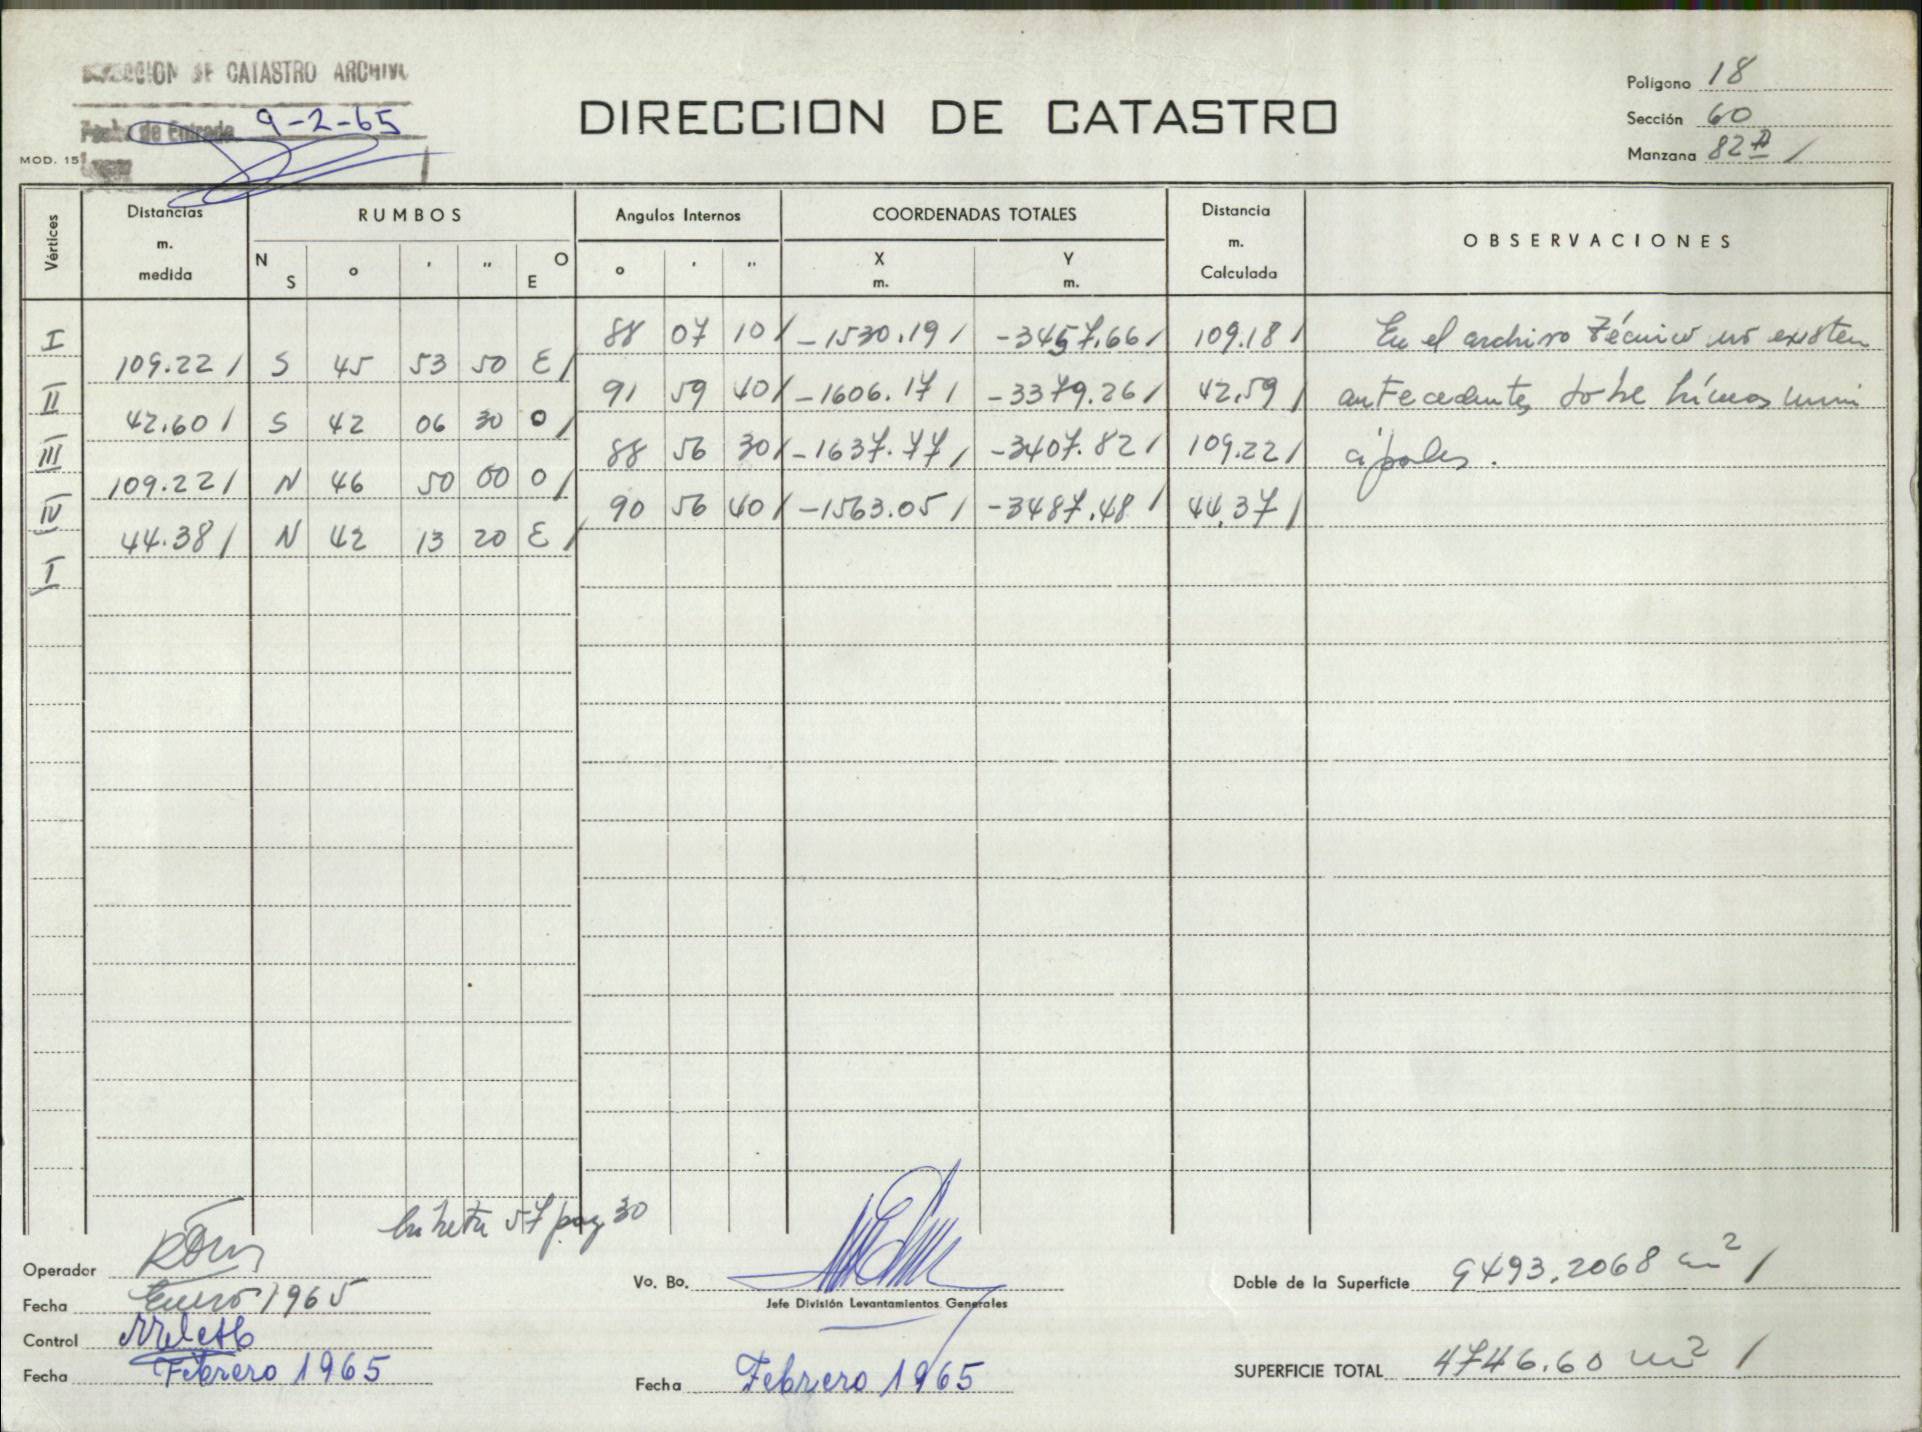 DIRECCION DE CATASTRO ARCHIVO
Fecha de Entrada 9-2-65
MOD. 15
DIRECCION DE CATASTRO
Polígono 18
Sección 60
Manzana 82 A /
Vértices
Distancias m. medida
RUMBOS
N S ° ' " O E
Angulos Internos
° ' "
COORDENADAS TOTALES
X m. Y m.
Distancia m. Calculada
OBSERVACIONES
I 88 07 10 / -1530.19 / -3457.66 / 109.18 / En el archivo técnico no existen
109.22 / S 45 53 50 E /
II 91 59 40 / -1606.17 / -3379.26 / 42.59 / antecedentes sobre líneas muni
42.60 / S 42 06 30 O /
III 88 56 30 / -1637.77 / -3407.82 / 109.22 / cipales.
109.22 / N 46 50 00 O /
IV 90 56 40 / -1563.05 / -3487.48 / 44.37 /
44.38 / N 42 13 20 E /
I
libreta 57 pag 30
Operador
Fecha Enero 1965
Control
Fecha Febrero 1965
Vo. Bo.
Jefe División Levantamientos Generales
Fecha Febrero 1965
Doble de la Superficie 9493.2068 m² /
SUPERFICIE TOTAL 4746.60 m² /